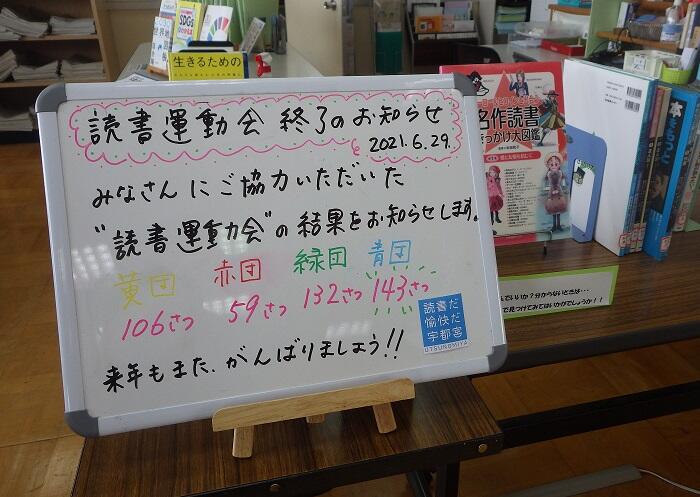 読書運動会 終了のお知らせ
2021.6.29.
みなさんにご協力いただいた
"読書運動会"の結果をお知らせします。
黄団 赤団 緑団 青団
106さつ 59さつ 132さつ 143さつ
来年もまた、がんばりましょう!!
読書だ
愉快だ
宇都宮
UTSUNOMIYA
生きるための
SDGs
名作読書
きっかけ大図鑑
でいいか？分からないときは…
で見つけてみてはいかがでしょうか！！